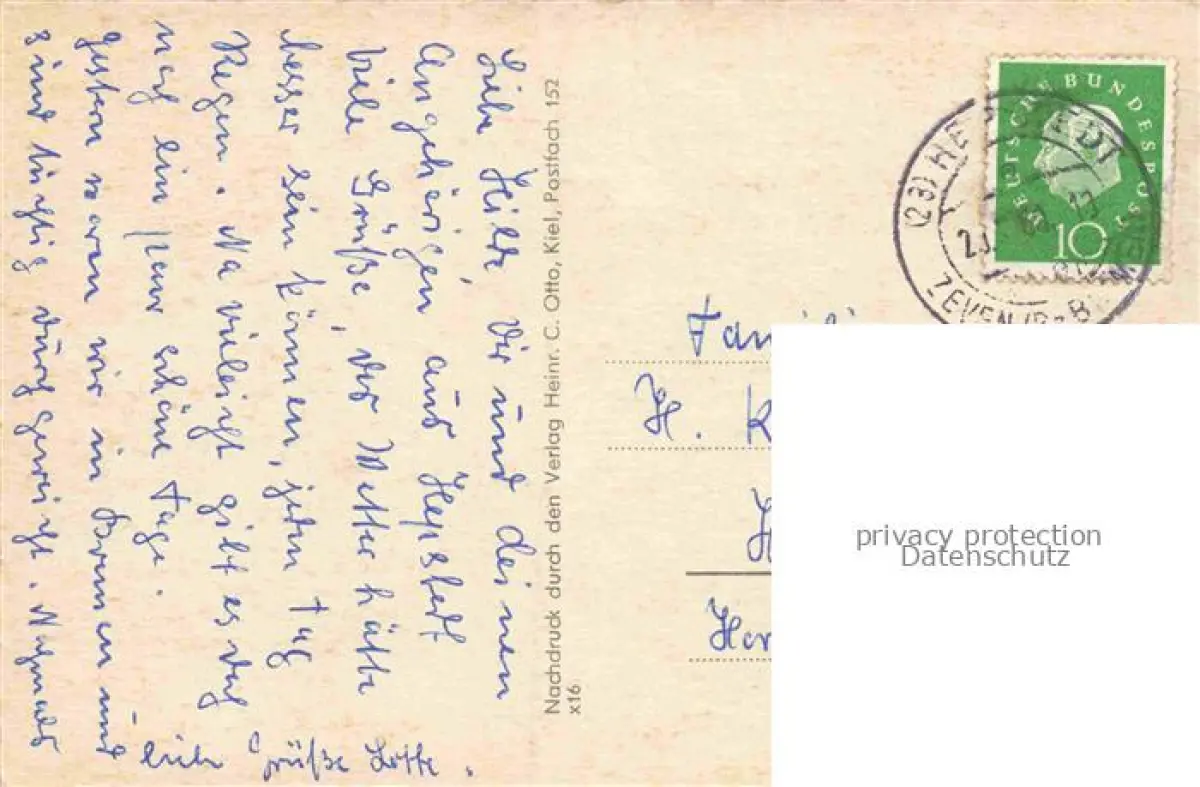 Liebe Hilde Dir und deinen
Angehörigen aus Hepstedt
viele Grüße, das Wetter hätte
besser sein können, jeden Tag
Regen. Na vieleicht gibt es doch
noch ein paar schöne Tage.
gestern waren wir in Bremen und
sind tüchtig durchgeweicht. Nochmals
liebe Grüße Lotte.
Nachdruck durch den Verlag Heinr. C. Otto, Kiel, Postfach 152
x16
DEUTSCHE BUNDESPOST
10
(23) HEPSTEDT
ZEVEN
H. K
privacy protection
Datenschutz